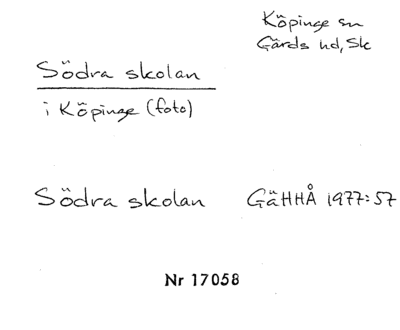 Köpinge sn
Gärds hd, Sk
Södra skolan
i Köpinge (foto)
Södra skolan GäHHÅ 1977:57
Nr 17058